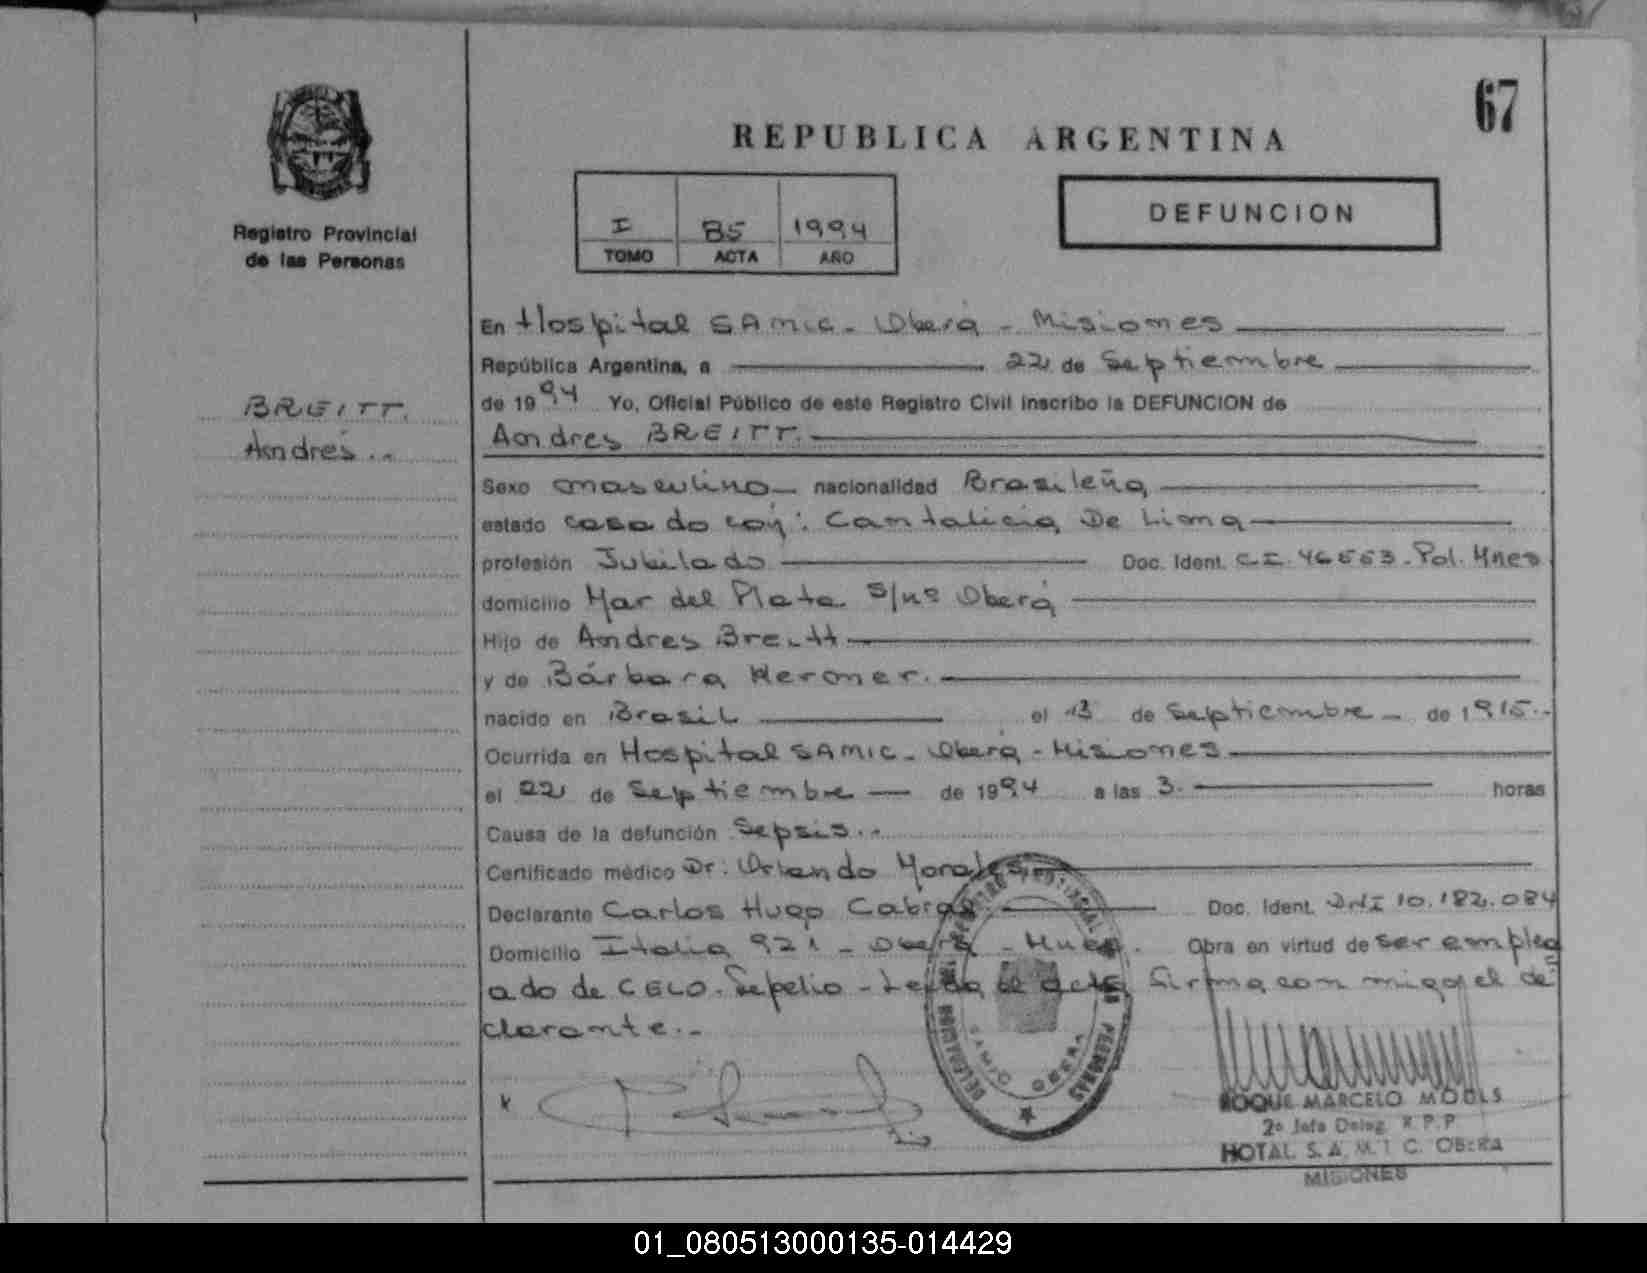 67
REPUBLICA ARGENTINA
I 85 1994
TOMO ACTA AÑO
DEFUNCION
Registro Provincial
de las Personas
BREITT.
Andrés..
En Hospital SAMIC - Oberá - Misiones
República Argentina, a 22 de Septiembre
de 1994 Yo, Oficial Público de este Registro Civil inscribo la DEFUNCION de
Andrés BREITT.
Sexo masculino nacionalidad Brasileña
estado casado coń: Cantalicia De Lima
profesión Jubilado Doc. Ident. C.I. 46553. Pol. Mnes
domicilio Mar del Plata s/nº Oberá
Hijo de Andres Breitt
y de Bárbara Kerner.
nacido en Brasil el 13 de Septiembre de 1915.-
Ocurrida en Hospital SAMIC - Oberá - Misiones
el 22 de Septiembre de 1994 a las 3. horas
Causa de la defunción Sepsis..
Certificado médico Dr: Orlando Morales
Declarante Carlos Hugo Cabral Doc. Ident. DNI 10.182.084
Domicilio Italia 921 - Oberá - Mnes. Obra en virtud de ser emplea
ado de CELO. Sepelio - Leida el acta firma con migo el de
clarante.-
REGISTRO PROVINCIAL DE LAS PERSONAS
DELEGACION
SAMIC OBERA
ROQUE MARCELO MODLS
2º Jefe Deleg. R.P.P
HOTAL S.A.M.I C. OBERA
MISIONES
01_080513000135-014429